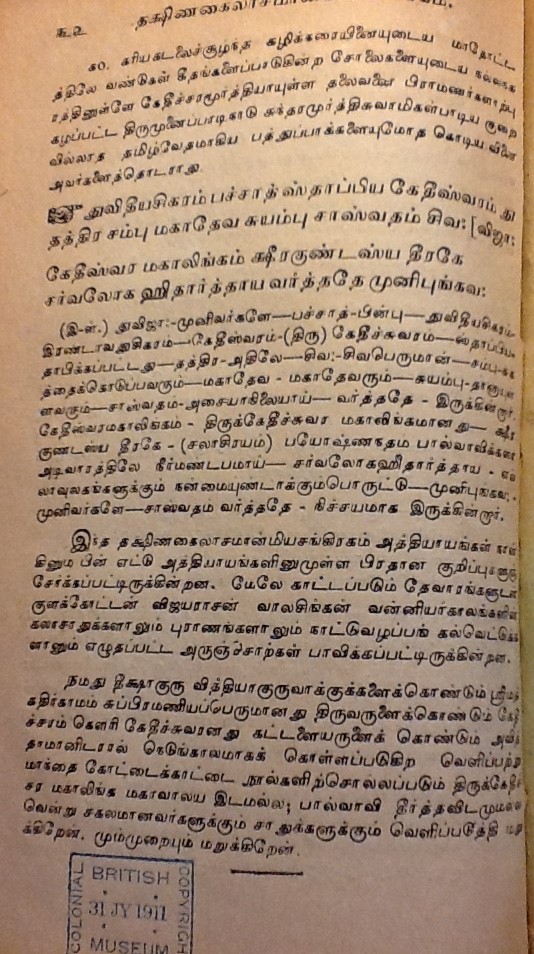 ௬௨ தக்ஷிணகைலாசமா
௧0. கரியகடலைச்சூழ்ந்த கழிக்கரையினையுடைய மாதோட்ட
த்திலே வண்டுகள் கீதங்களைப்பாடுகின்ற சோலைகளையுடைய
ரத்தினுள்ளே கேதீச்சரமூர்த்தியாயுள்ள தலைவனை பிராமணர்களாற்பு
கழப்பட்ட திருமுனைப்பாடிநாடு சுந்தரமூர்த்திசுவாமிகள்பாடிய குறை
வில்லாத தமிழ்வேதமாகிய பத்துப்பாக்களையுமோத கொடிய வினை
அவர்களைத்தொடராது.
துவிதீயசிகரம் பச்சாத் ஸ்தாப்பிய கேதீஸ்வரம் து
தத்திர சம்பு மகாதேவ சுயம்பு சாஸ்வதம் சிவ: [விஜா:
கேதீஸ்வர மகாலிங்கம் க்ஷீரகுண்டஸ்ய தீரகே
சர்வலோக ஹிதார்த்தாய வர்த்ததே முனிபுங்கவ:
(இ-ள்.) துவிஜா:-முனிவர்களே—பச்சாத்-பின்பு—துவிதீயசிகரம்-
இரண்டாவதுசிகரம்—கேதீஸ்வரம்-(திரு) கேதீச்சுவரம்—ஸ்தாப்பிய-
தாபிக்கப்பட்டது—தத்திர-அதிலே—சிவ:-சிவபெருமான்—சம்பு-சுக
த்தைக்கொடுப்பவரும்—மகாதேவ - மகாதேவரும்—சுயம்பு-தானாயு
ளவரும்—சாஸ்வதம்-அசையாநிலையாய்— வர்த்ததே - இருக்கின்றார்.
கேதீஸ்வரமகாலிங்கம் - திருக்கேதீச்சுவர மகாலிங்கமானது— க்ஷீர
குண்டஸ்ய தீரகே - (சலாசிரயம்) பயோஷ்ணநதம் பால்வாவிக்கரை
அடிவாரத்திலே நீர்மண்டபமாய்— சர்வலோகஹிதார்த்தாய - எல்
லாவுலகங்களுக்கும் நன்மையுண்டாக்கும்பொருட்டு—முனிபுங்கவ: -
முனிவர்களே—சாஸ்வதம் வர்த்ததே - நிச்சயமாக இருக்கின்றார்.
இந்த தக்ஷிணகைலாசமான்மியசங்கிரகம் அத்தியாயங்கள் நான்
கினும் பின் எட்டு அத்தியாயங்களினுமுள்ள பிரதான குறிப்புகளுஞ்
சேர்க்கப்பட்டிருக்கின்றன. மேலே காட்டப்படும் தேவாரங்களுடன்
குளக்கோட்டன் விஜயராசன் வாலசிங்கன் வன்னியர்காலங்களின்
கலாசாதுக்களாலும் புராணங்களாலும் நாட்டுவழப்பங் கல்வெட்டுக்க
ளானும் எழுதப்பட்ட அருஞ்சொற்கள் பாவிக்கப்பட்டிருக்கின்றன.
நமது தீக்ஷாகுரு வித்தியாகுருவாக்குக்களைக்கொண்டும் ஸ்ரீமத்
கதிர்காமம் சுப்பிரமணியப்பெருமானது திருவருளைக்கொண்டும் கேதீ
ச்சரம் கௌரி கேதீச்சுவரனது கட்டளையருளைக் கொண்டும்
தாமானிடரால் நெடுங்காலமாகக் கொள்ளப்படுகிற வெளிப்பற்று
மாந்தை கோட்டைக்காட்டை நூல்களிற்சொல்லப்படும் திருக்கேதீச்
சர மகாலிங்க மகாவாலய இடமல்ல; பால்வாவி தீர்த்தவிடமுமல்ல
வென்று சகலமானவர்களுக்கும் சாதுக்களுக்கும் வெளிப்படுத்தி மறு
க்கிறேன். மும்முறையும் மறுக்கிறேன்.
COLONIAL
BRITISH
31 JY 1911
MUSEUM
COPYRIGH